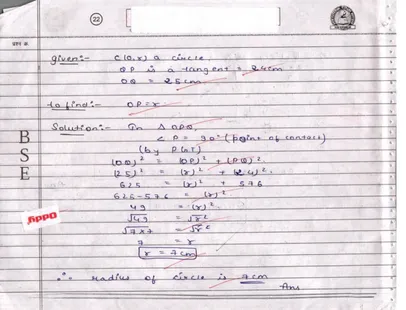 22
प्रश्न क्र.
given:- C(O,r) a circle
QP is a tangent = 24cm
OQ = 25cm
to find:- OP=r
Solution:- In Δ OPQ,
∠P = 90° (point of contact)
(by P.G.T)
(OQ)² = (OP)² + (PQ)²
(25)² = (r)² + (24)²
625 = (r)² + 576
625-576 = (r)²
49 = (r)²
√49 = √r²
√7×7 = √r²
7 = r
r = 7cm
∴ radius of circle is 7cm
Ans
BSE
Oddy